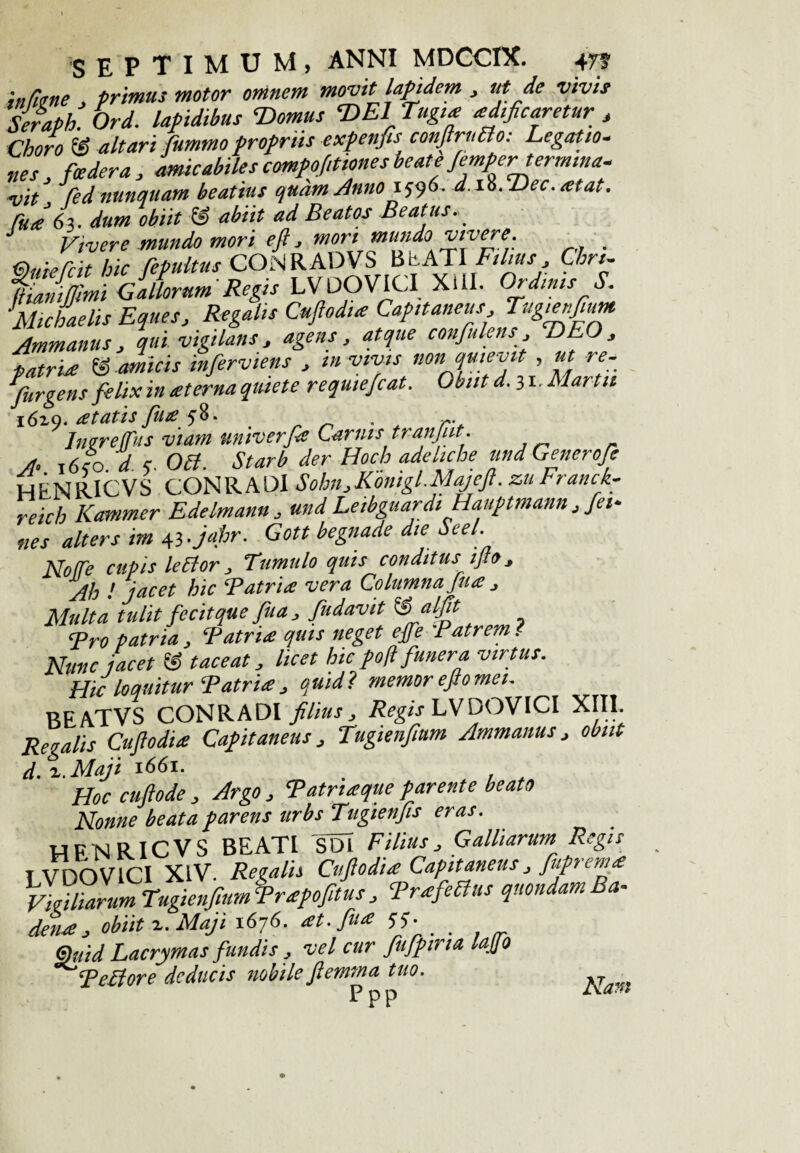 SEPTIMUM, ANNI MDCCIX. 473
insigne, primus motor omnem movit lapidem, ut de vivis
Seraph. Ord. lapidibus Domus DEI Tugiæ ædificaretur,
Choro & altari summo propriis expensis constructo: Legatio-
nes, fœdera, amicabiles compositiones beatè semper termina-
vit, sed nunquam beatius quàm Anno 1596. d. 18. Dec. ætat.
suæ 63. dum obiit & abiit ad Beatos Beatus.
Vivere mundo mori est, mori mundo vivere.
Quiescit hic sepultus CONRADVS BEATI Filius, Chri-
stianissimi Gallorum Regis LVDOVICI XIII. Ordinis S.
Michaelis Eques, Regalis Custodiæ Capitaneus, Tugiensium
Ammanus, qui vigilans, agens, atque consulens, DEO,
patriæ & amicis inserviens, in vivis non quievit, ut re-
surgens felix in æterna quiete requiescat. Obiit d. 31. Martii
1629. ætatis suæ 58.
Ingressus viam universæ Carnis transiit.
Aº. 1650. d. 5. Oct. Starb der Hoch adeliche und Generose
HENRICVS CONRADI Sohn, Königl. Majest. zu Franck-
reich Kammer Edelmann, und Leibguardi Hauptmann, sei-
nes alters im 43. jahr. Gott begnade die Seel.
Nosse cupis lector, Tumulo quis conditus isto,
Ah! jacet hic Patriæ vera Columna suæ,
Multa tulit fecitque sua, sudavit & alsit
Pro patria, Patriæ quis neget esse Patrem?
Nunc jacet & taceat, licet hic post funera virtus.
Hic loquitur Patriæ, quid? memor esto mei.
BEATVS CONRADI filius, Regis LVDOVICI XIII.
Regalis Custodiæ Capitaneus, Tugiensium Ammanus, obiit
d. 2. Maji 1661.
Hoc custode, Argo, Patriæque parente beato
Nonne beata parens urbs Tugiensis eras.
HENRICVS BEATI SDI Filius, Galliarum Regis
LVDOVICI XIV. Regalis Custodiæ Capitaneus, supremæ
Vigiliarum Tugiensium Præpositus, Præfectus quondam Ba-
denæ, obiit 2. Maji 1676. æt. suæ 55.
Quid Lacrymas fundis, vel cur suspiria lasso
Pectore deducis nobile stemma tuo.
Ppp Nam